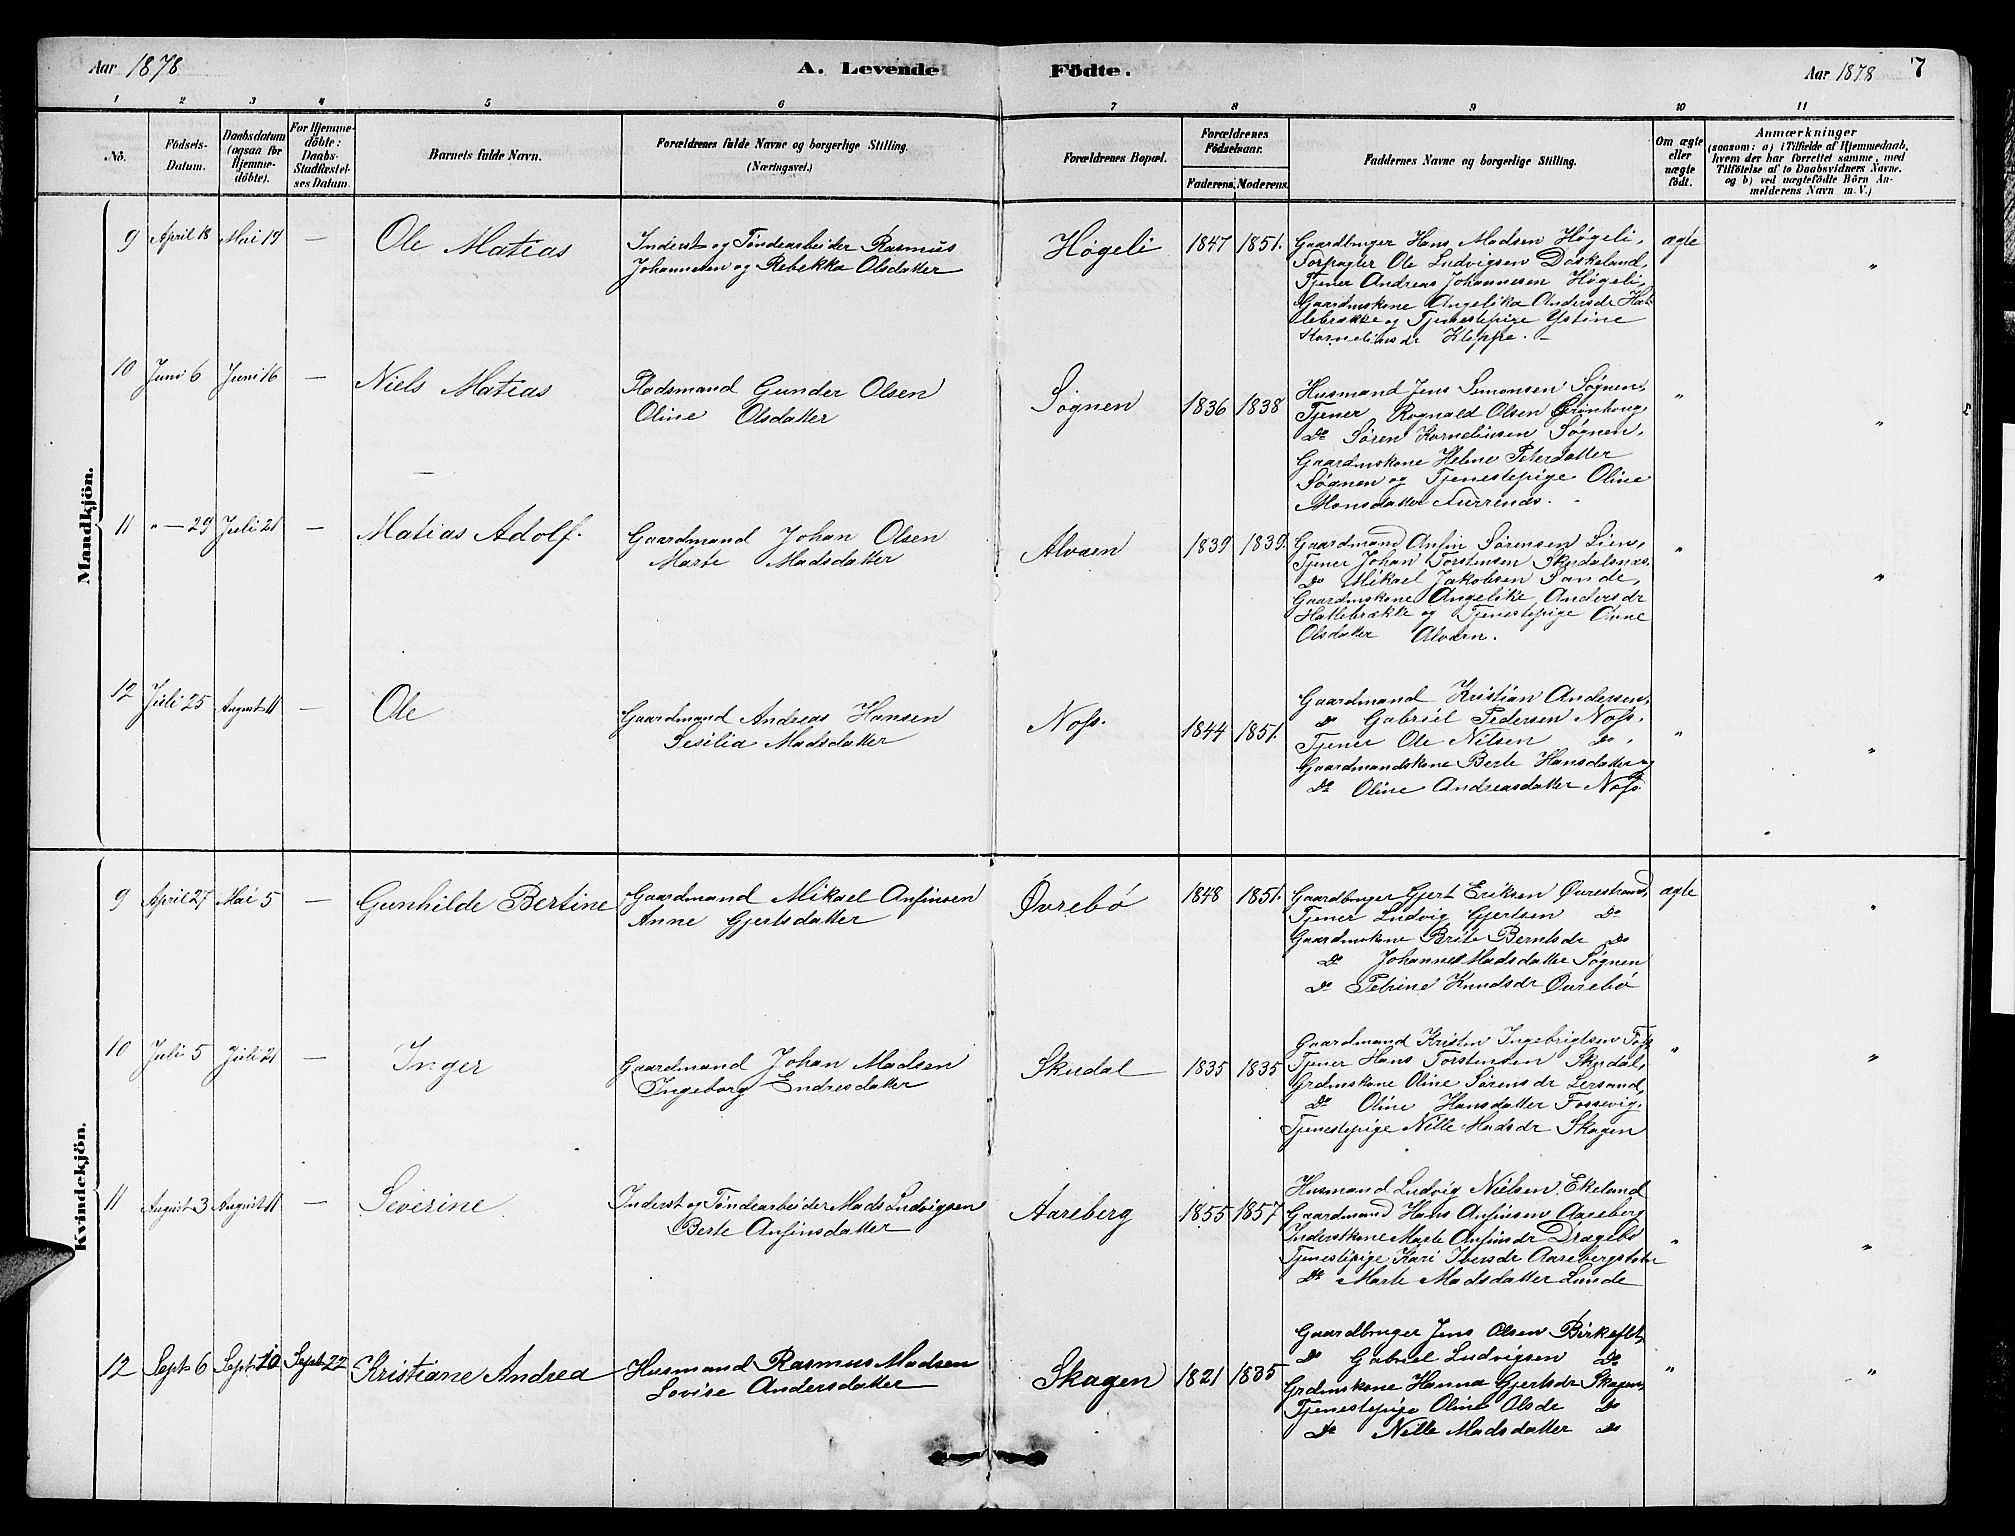 Aar 1878 A. Levende Födte. Aar 1878 7
1 2 3 4 5 6 7 8 9 10 11
No. Födsels-Datum. Daabsdatum (ogsaa for Hjemme-döbte). For Hjemme-döbte: Daabs-Stadfæstel-ses Datum. Barnets fulde Navn. Forældrenes fulde Navne og borgerlige Stilling. (Næringsvei.) Forældrenes Bopæl. Forældrenes Födselsaar. Faderens. Moderens. Faddernes Navne og borgerlige Stilling. Om ægte eller uægte födt. Anmærkninger
(saasom: a) i Tilfælde af Hjemmedaab,
hvem der har forrettet samme, med
Tilföielse af to Daabsvidners Navne.
og b) ved uægtefödte Börn An-
melderens Navn m. V.)
Mandkjön.
9 April 18 Mai 19 — Ole Matias
Inderst og Tøndearbeider Rasmus
Johannesen og Rebekka Olsdatter
Høgeli 1847 1851.
Gaardbruger Hans Madsen Høgeli,
Forpagter Ole Ludvigsen Daskeland,
Tjener Andreas Johannesen Høgeli,
Gaardmskone Angelika Andersdr Hat-
lebrække og Tjenestepige Ystine
Korneliusdr Kleppe. —
ægte "
10 Juni 6 Juni 16 — Niels Matias
Pladsmand Gunder Olsen
Oline Olsdatter
Søgnen 1836 1838
Husmand Jens Simonsen Søgnen,
Tjener Rognald Olsen Grønhoug,
Do Søren Korneliusen Søgnen,
Gaardmskone Helene Petersdatter
Søgnen og Tjenestepige Oline
Monsdatter Furrenæs.
" "
11 " — 29 Juli 21 — Matias Adolf.
Gaardmand Johan Olsen
Marte Madsdatter
Alvæn 1839 1839.
Gaardmand Anfin Sørensen Lien,
Tjener Johan Torstensen Skudalsnæs.
Do Mikael Jakobsen Sande,
Gaardmskone Angelike Andersdr
Hatlebrække og Tjenestepige Anne
Olsdatter Alværn.
" "
12 Juli 25 August 11 — Ole
Gaardmand Andreas Hansen
Sesilia Madsdatter
Noss. 1844 1851.
Gaardmand Kristian Andersen,
Do Gabriel Pedersen Noss,
Tjener Ole Nilsen Do,
Gaardmandskone Berte Hansdatter og
Do Oline Andreasdatter Noss
" "
Kvindekjön.
9 April 27 Mai 5 — Gunhilde Bertine
Gaardmand Mikael Anfinsen
Anne Gjertsdatter
Øvrebø 1848 1851.
Gaardbruger Gjert Eriksen Øvrestrand,
Tjener Ludvig Gjertsen Do
Gaardmskone Brite Berntsdr Do
Do Johanne Madsdatter Søgnen
Do Petrine Knudsdr Øvrebø
ægte "
10 Juli 5 Juli 21 — Inger
Gaardmand Johan Madsen
Ingeborg Endresdatter
Skudal 1835 1835
Gaardmand Kristen Ingebrigtsen Foss
Tjener Hans Torstensen Skudal,
Grdmskone Oline Sørensdr Lersand,
Do Oline Hansdatter Fossevig,
Tjenestepige Nille Madsdr Skagen
" "
11 August 3 August 11 — Severine
Inderst og Tøndearbeider Mads Ludvigsen
Berte Anfinsdatter
Aareberg 1855 1857
Husmand Ludvig Nielsen Ekeland
Gaardmand Hans Anfinsen Aareberg
Inderstkone Marte Anfinsdr Dragebø
Tjenestepige Kari Iversdr Aarebergstøter
Do Marte Madsdatter Lunde
" "
12 Sept 6 Sept 10 Sept 22 Kristiane Andrea
Husmand Rasmus Madsen
Lovise Andersdatter
Skagen 1821 1835
Gaardbruger Jens Olsen Birkeflot,
Do Gabriel Ludvigsen Do
Grdmskone Hanna Gjertsdr Skagen,
Tjenestepige Oline Olsdr Do
Do Nille Madsdatter Do
" "